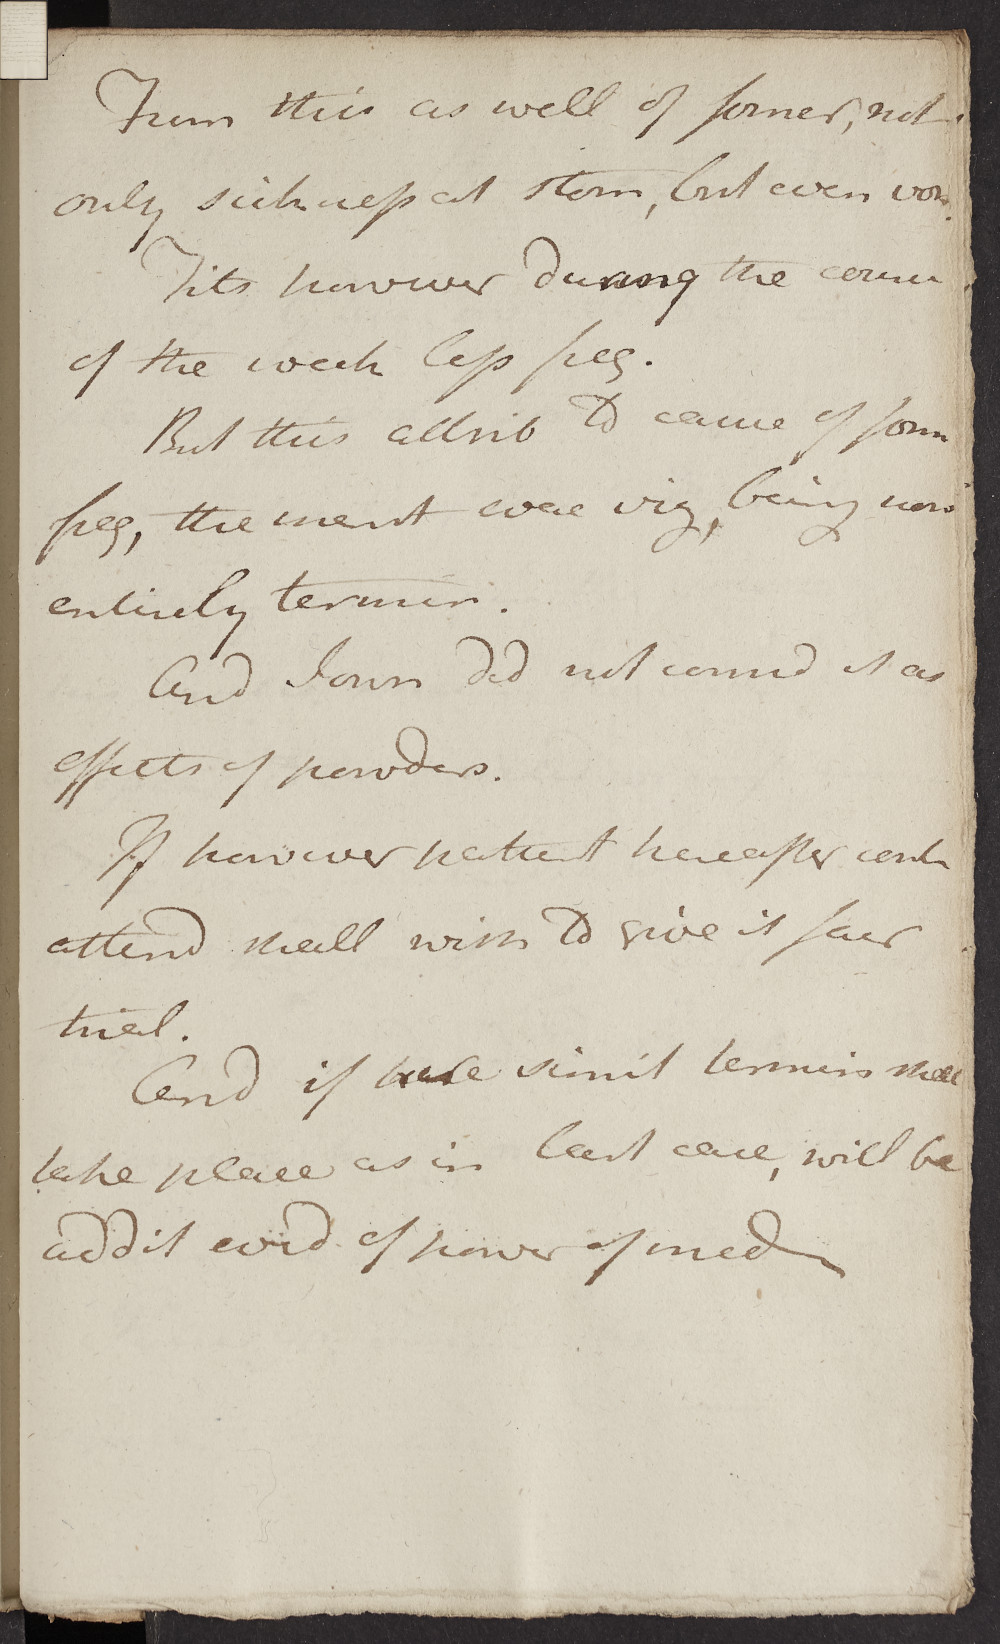 From this as well of former, not
only sickness at stom, but even vom.
Fits however during the course
of the week less freq.
But this attrib to cause of form
freq, the menst evac viz, being now
entirely termin.
And I own did not consid it as
effects of powders.
If however patient hereafter cont
attend shall wish to give it fair
trial.
And if here simil termin shall
take place as in last case, will be
addit evid of power of med